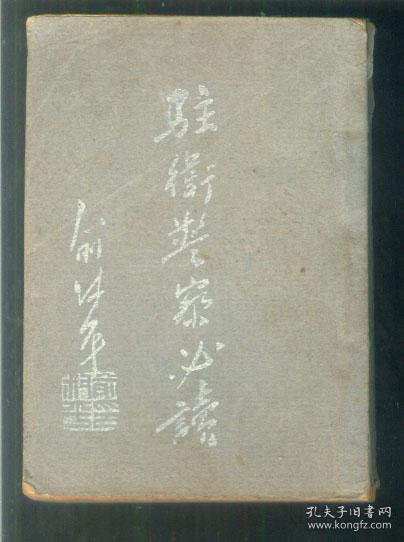 駐衛警察必讀
俞叔平
孔夫子旧书网
www.kongfz.com